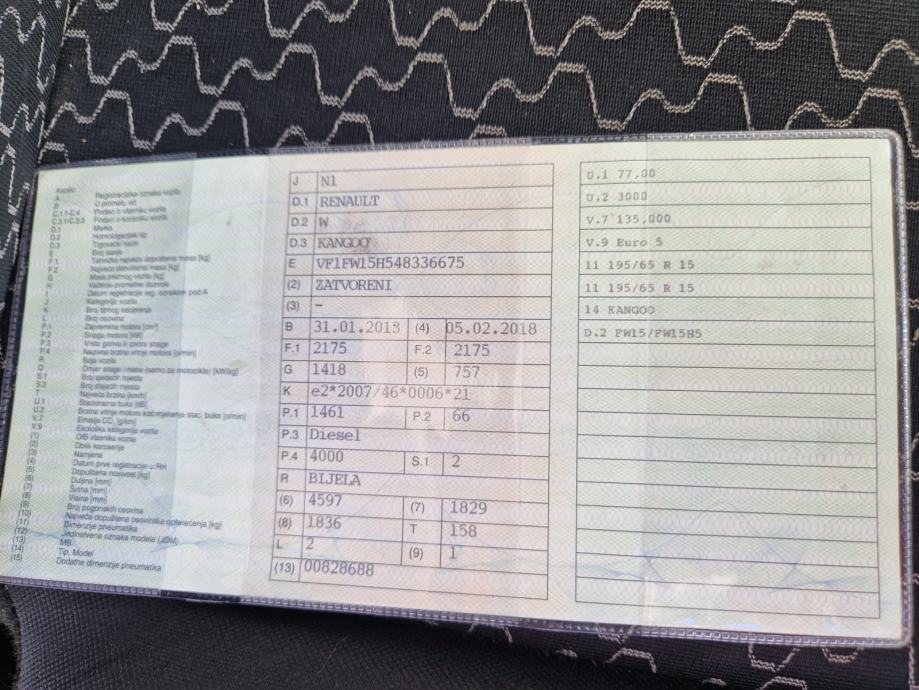 Kazalo
A Registracijska oznaka vozila
B U prometu od
C.1.1-C.4 Podaci o vlasniku vozila
C.3.1-C.3.3 Podaci o korisniku vozila
D.1 Marka
D.2 Homologacijski tip
D.3 Trgovački naziv
E Broj šasije
F.1 Tehnička najveća dopuštena masa [kg]
F.2 Najveća dopuštena masa [kg]
G Masa praznog vozila [kg]
H Važenje prometne dozvole
I Datum registracije reg. oznakom pod A
J Kategorija vozila
K Broj tipnog odobrenja
L Broj osovina
P.1 Zapremina motora [cm³]
P.2 Snaga motora [kW]
P.3 Vrsta goriva ili izvora snage
P.4 Nazivna brzina vrtnje motora [o/min]
R Boja vozila
Q Omjer snage i mase (samo za motocikle) [kW/kg]
S.1 Broj sjedećih mjesta
S.2 Broj stajaćih mjesta
T Najveća brzina [km/h]
U.1 Stacionarna buka [dB]
U.2 Brzina vrtnje motora kod mjerenja stac. buke [o/min]
V.7 Emisija CO₂ [g/km]
V.9 Ekološka kategorija vozila
(1) OIB vlasnika vozila
(2) Oblik karoserije
(3) Namjena
(4) Datum prve registracije u RH
(5) Dopuštena nosivost [kg]
(6) Duljina [mm]
(7) Širina [mm]
(8) Visina [mm]
(9) Broj pogonskih osovina
(10) Najveća dopuštena osovinska opterećenja [kg]
(11) Dimenzije pneumatika
(12) Jedinstvena oznaka modela (JOM)
(13) MB
(14) Tip, Model
(15) Dodatne dimenzije pneumatika
J N1
D.1 RENAULT
D.2 W
D.3 KANGOO
E VF1FW15H548336675
(2) ZATVORENI
(3) –
B 31.01.2013 (4) 05.02.2018
F.1 2175 F.2 2175
G 1418 (5) 757
K e2*2007/46*0006*21
P.1 1461 P.2 66
P.3 Diesel
P.4 4000 S.1 2
R BIJELA
(6) 4597 (7) 1829
(8) 1836 T 158
L 2 (9) 1
(13) 00828688
U.1 77,00
U.2 3000
V.7 135,000
V.9 Euro 5
11 195/65 R 15
11 195/65 R 15
14 KANGOO
D.2 FW15/FW15H5